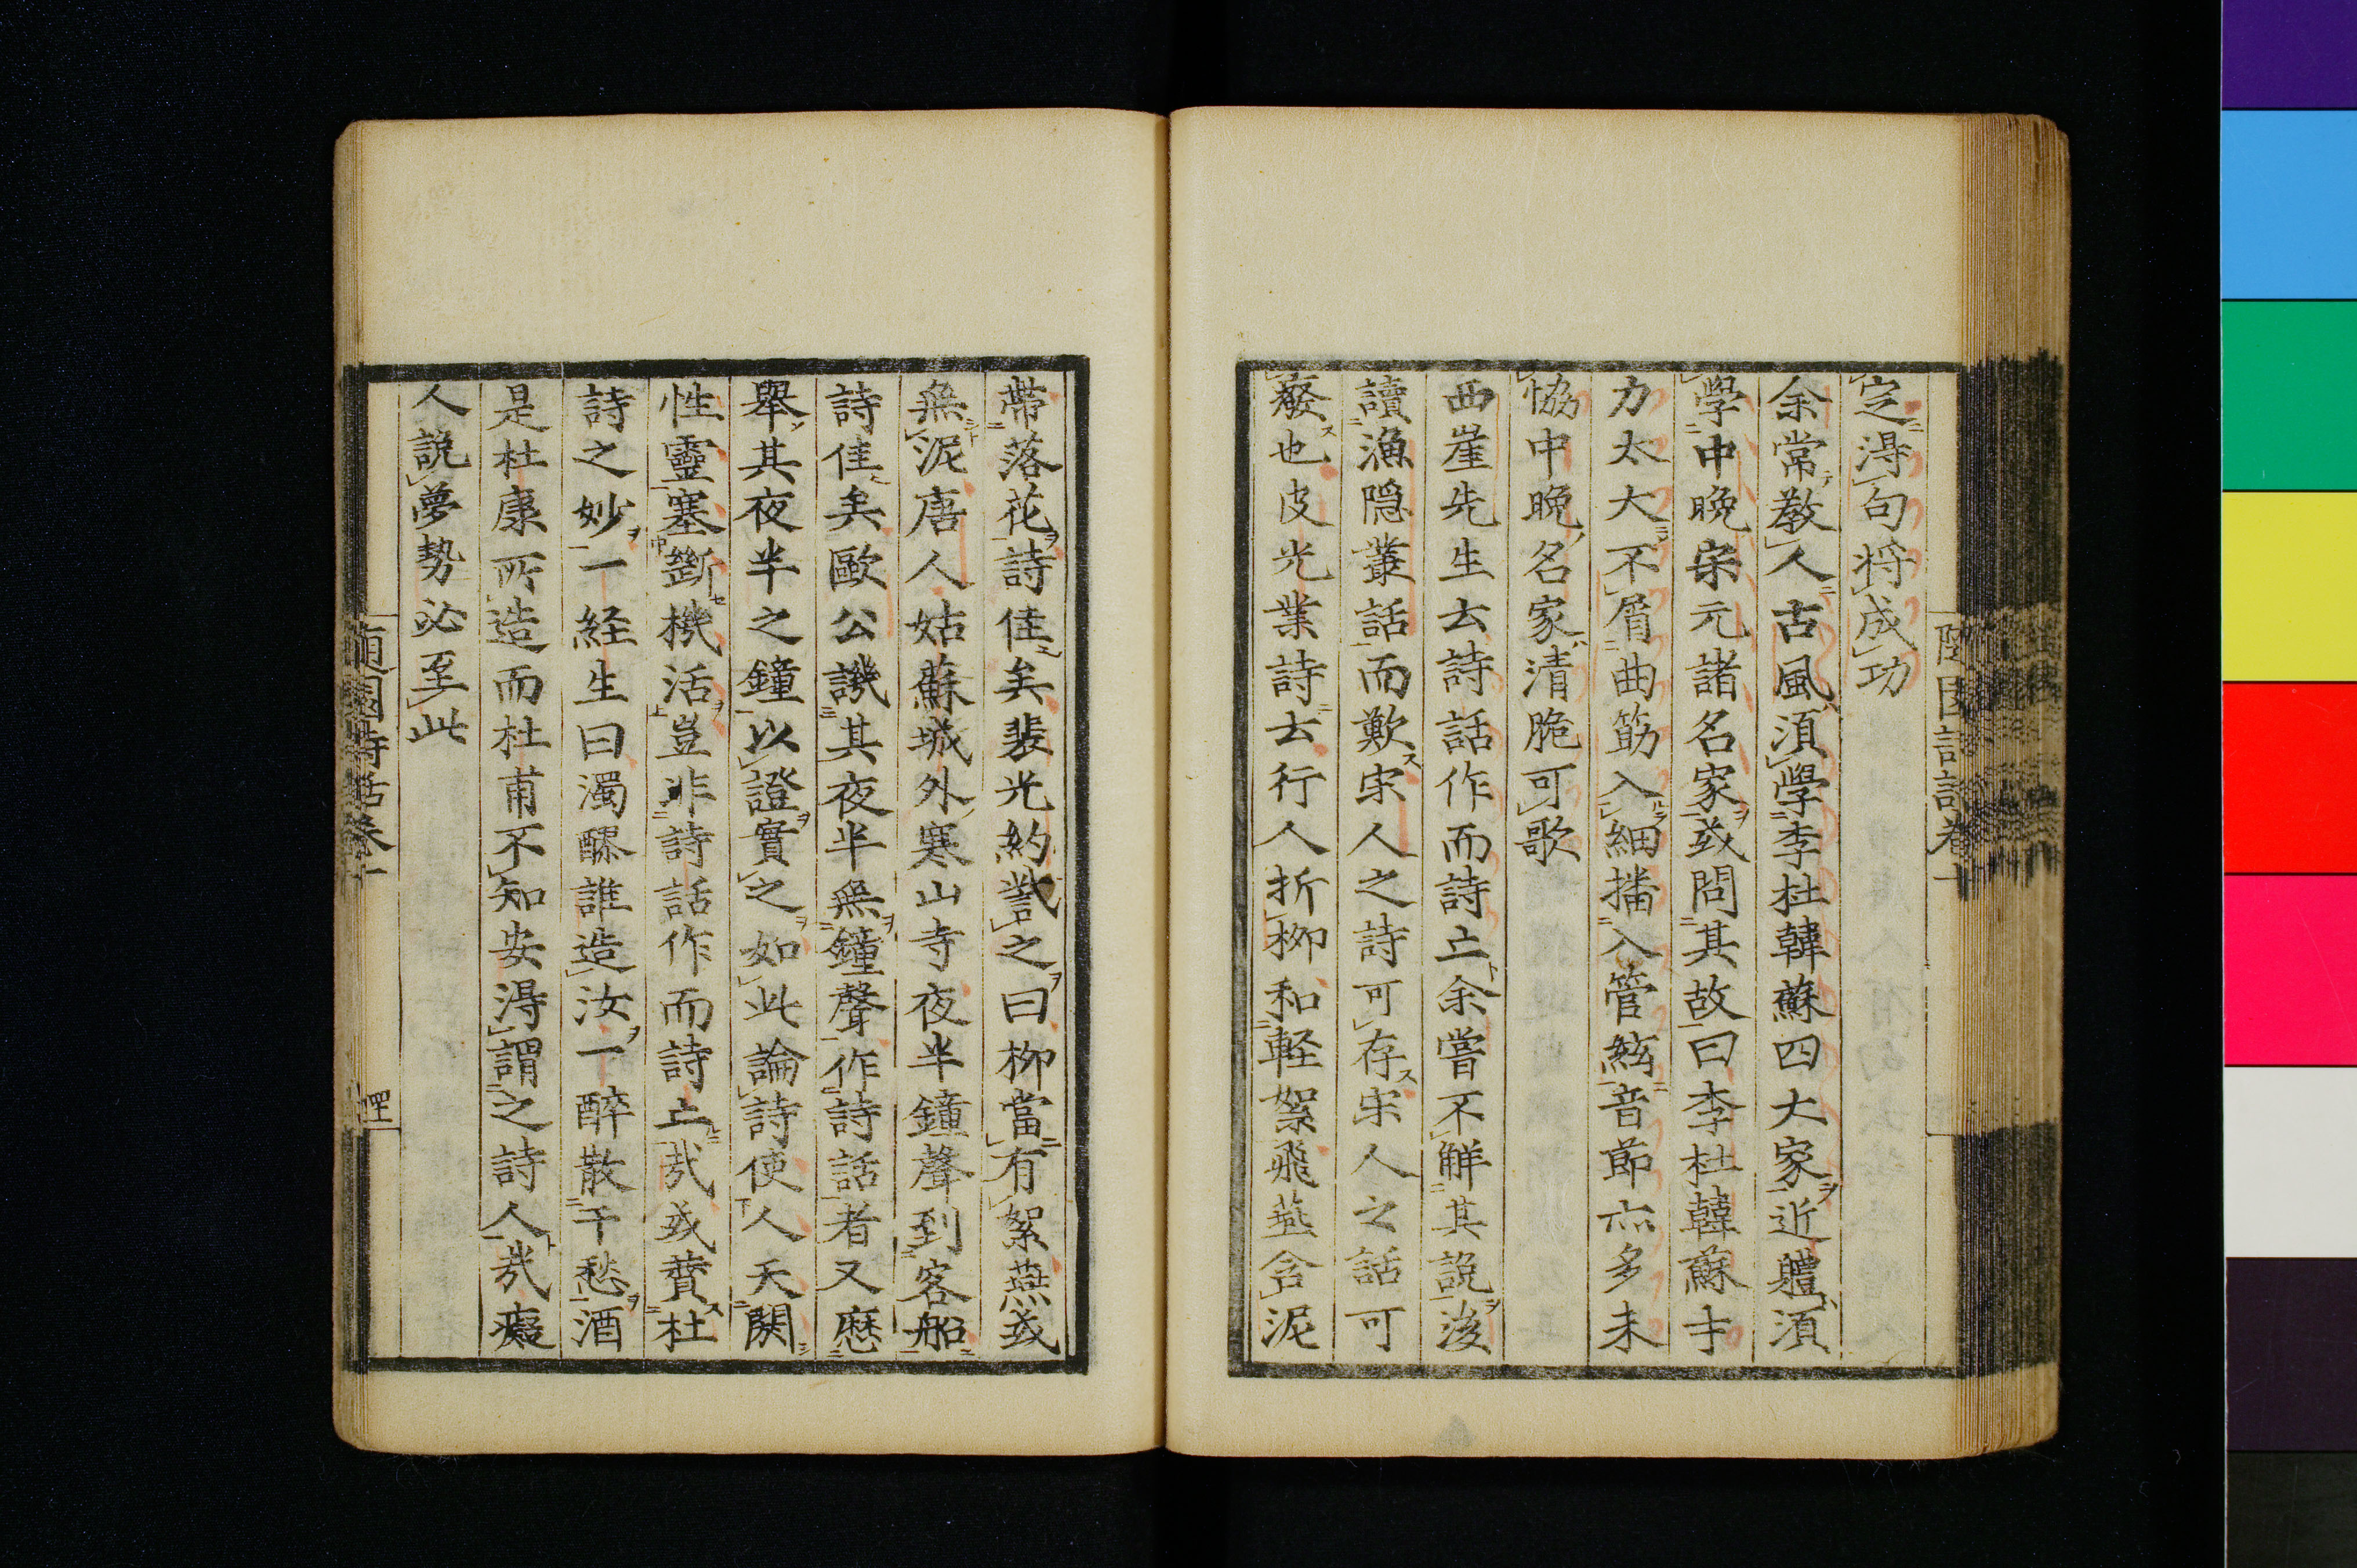 定得句将成功
余常教人古風湏學李杜韓蘇四大家近軆湏
學中晩宋元諸名家或問其故曰李杜韓蘇才
力太大不屑曲筯入細播入管絃音節亦多未
恊中晩名家清脆可歌
西崖先生云詩話作而詩亡余甞不觧其說後
讀漁隠叢話而歎宋人之詩可存宋人之話可
廢也皮光業詩云行人折栁和軽絮飛燕含泥
帶落花詩佳矣裴光約訾之曰栁當有絮燕或
無泥唐人姑蘇城外寒山寺夜半鐘聲到客船
詩佳矣歐公譏其夜半無鐘聲作詩話者又歴
舉其夜半之鐘以證實之如此論詩使人夭閼
性靈塞斷機活豈非詩話作而詩亡哉或賛杜
詩之妙一経生曰濁醪誰造汝一醉散千愁酒
是杜康所造而杜甫不知安得謂之詩人哉癡
人説夢勢必至此